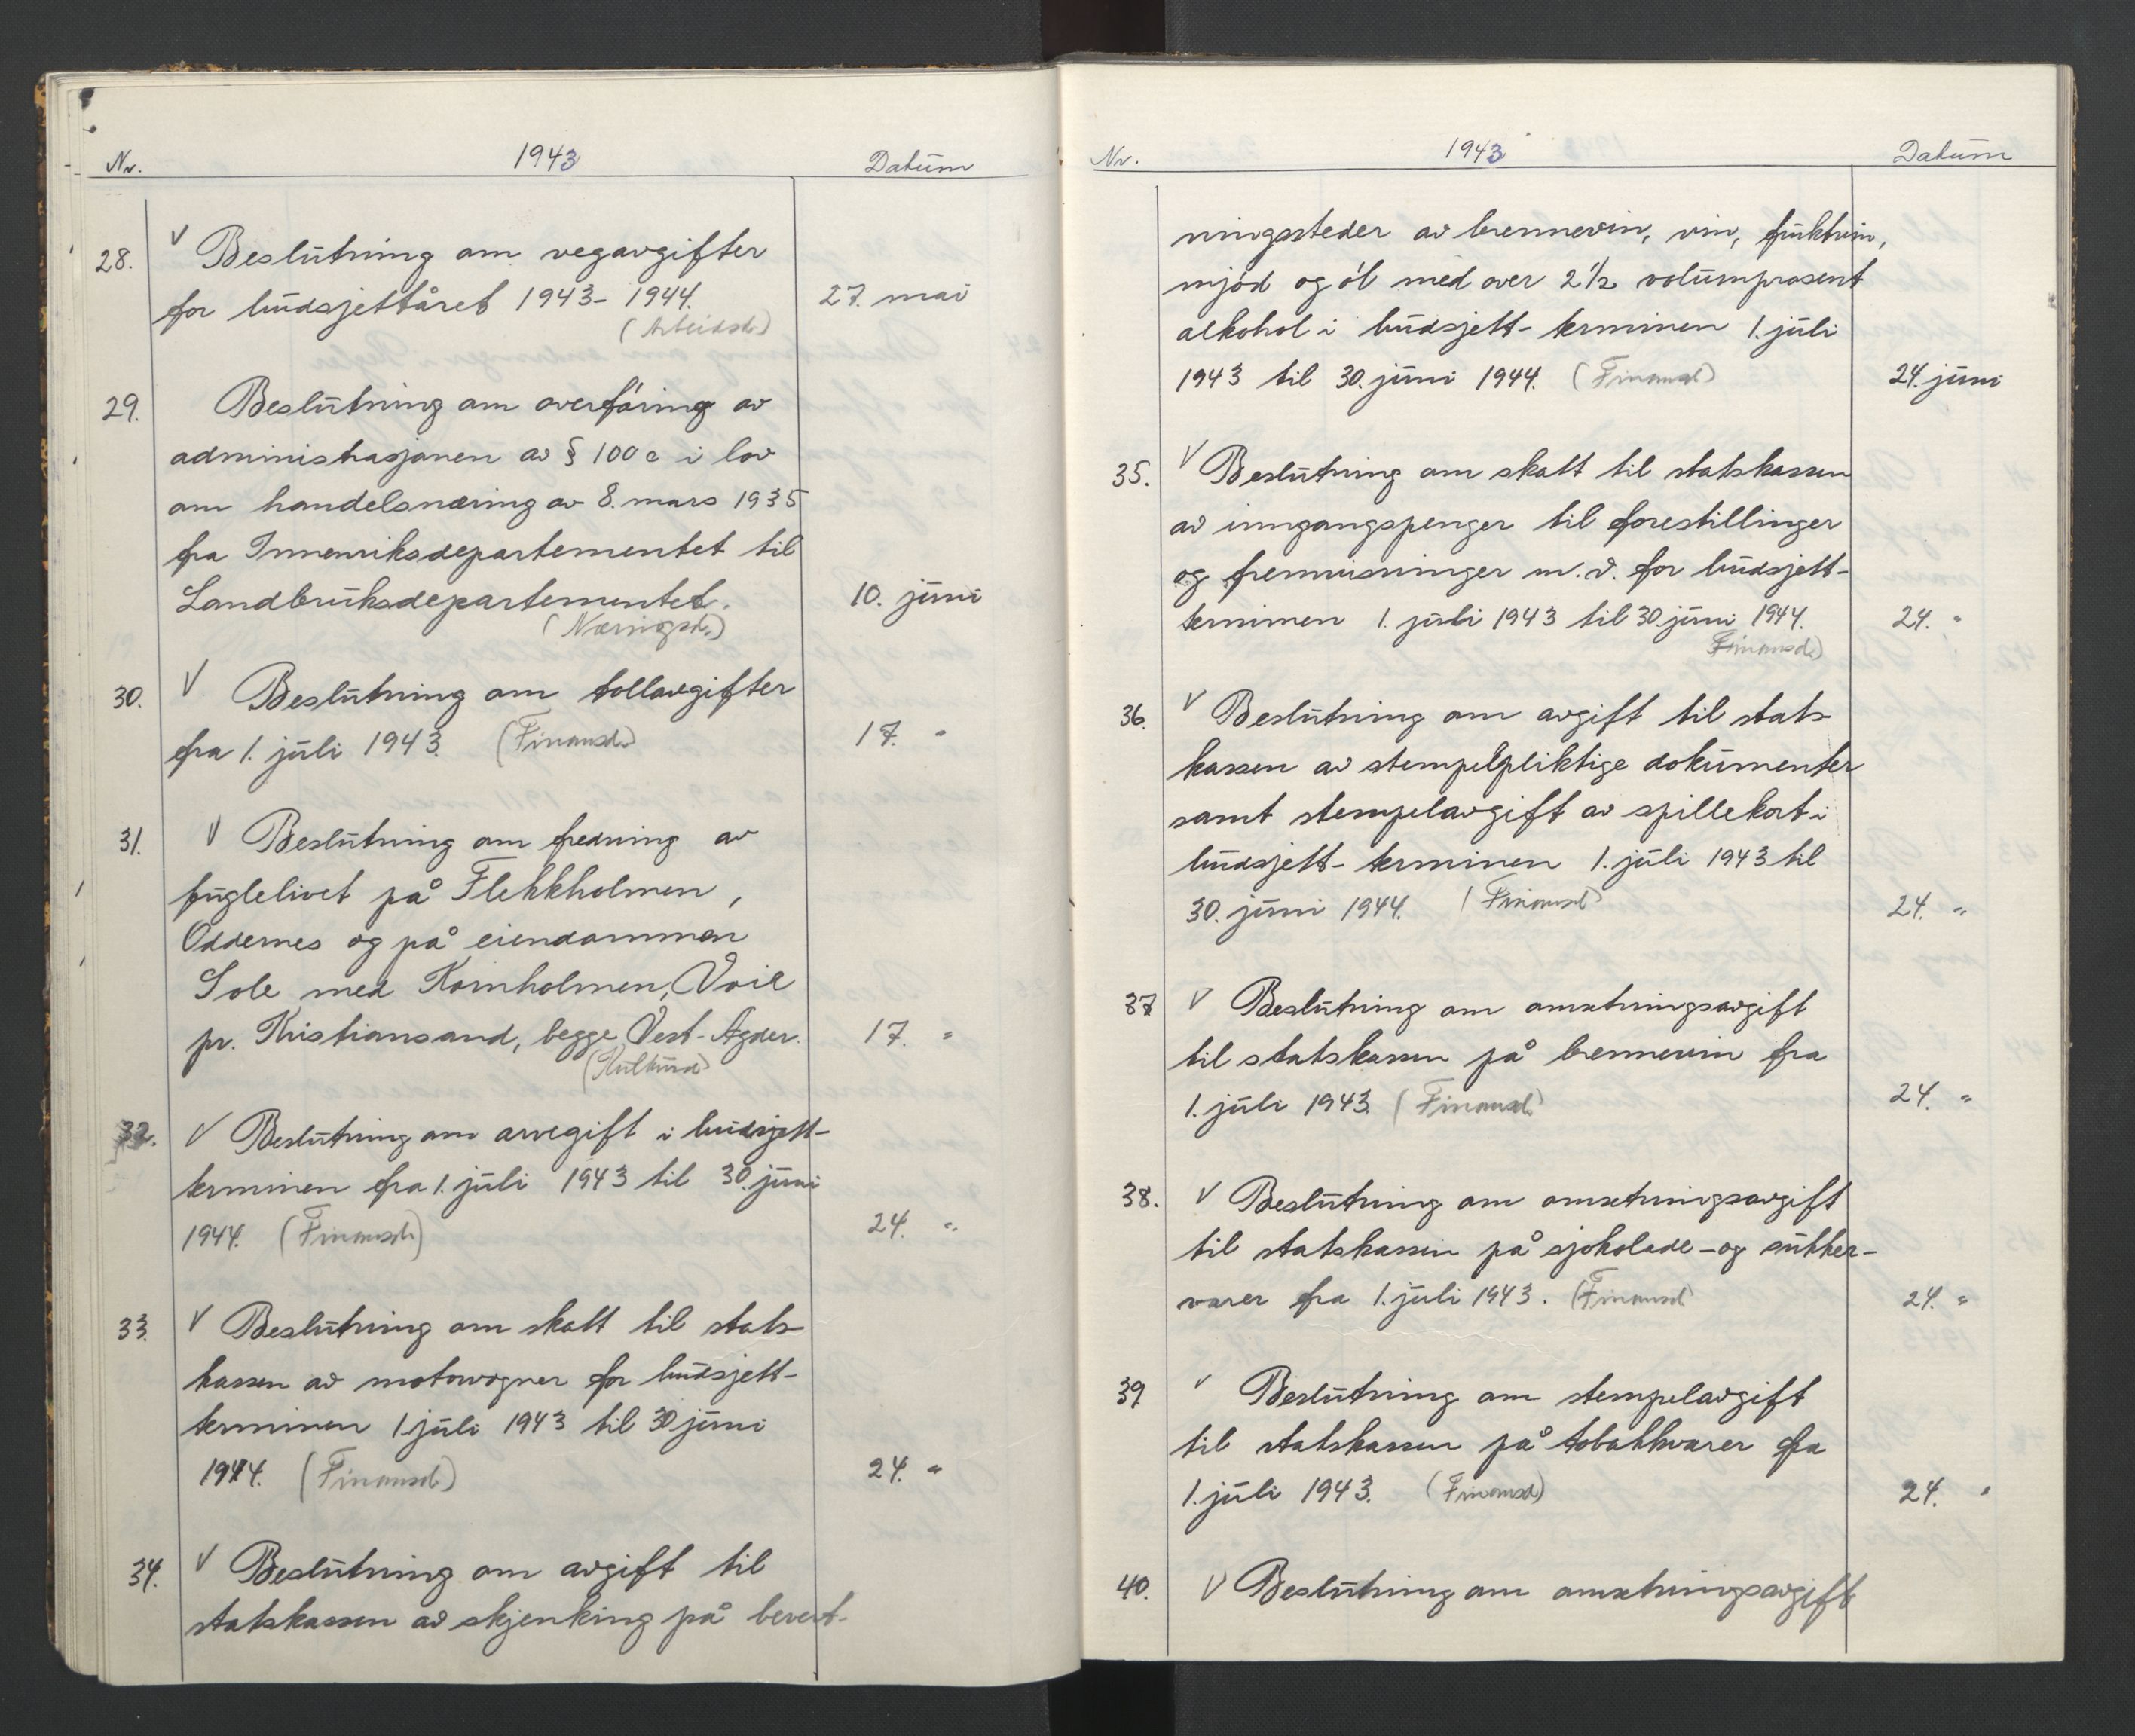 Nr. 1943 Datum
28. V Beslutning om vegavgifter
for budsjettåret 1943-1944. 27. mai
(Arbeidsd.)
29. Beslutning om overføring av
administrasjonen av § 100 c i lov
om handelsnæring av 8. mars 1935
fra Innenriksdepartementet til
Landbruksdepartementet. 10. juni
(Næringsd.)
30. V Beslutning om tollavgifter
fra 1. juli 1943. (Finansd.) 17. "
31. V Beslutning om fredning av
fuglelivet på Flekkholmen,
Oddernes og på eiendommen
Sole med Kornholmen, Voie
pr. Kristiansand, begge Vest-Agder. 17. "
(Kulturd)
32. V Beslutning om arvegift i budsjett-
terminen fra 1. juli 1943 til 30. juni
1944. (Finansd.) 24. "
33. V Beslutning om skatt til stats-
kassen av motorvogner for budsjett-
terminen 1 juli 1943 til 30 juni
1944. (Finansd.) 24. "
34. V Beslutning om avgift til
statskassen av skjenking på bevert-
Nr. 1943 Datum
ningssteder av brennevin, vin, fruktvin,
mjød og øl med over 2 1/2 volumprosent
alkohol i budsjett-terminen 1. juli
1943 til 30. juni 1944. (Finansd.) 24. juni
35. V Beslutning om skatt til statskassen
av inngangspenger til forestillinger
og fremvisninger m.v. for budsjett-
terminen 1. juli 1943 til 30. juni 1944. 24. "
Finansd.)
36. V Beslutning om avgift til stats-
kassen av stempelpliktige dokumenter
samt stempelavgift av spillekort i
budsjett-terminen 1. juli 1943 til
30. juni 1944. (Finansd) 24. "
37 V Beslutning om omsetningsavgift
til statskassen på brennevin fra
1. juli 1943. (Finansd.) 24. "
38. V Beslutning om omsetningsavgift
til statskassen på sjokolade-og sukker-
varer fra 1. juli 1943. (Finansd) 24. "
39 V Beslutning om stempelavgift
til statskassen på tobakkvarer fra
1. juli 1943. (Finansd) 24. "
40. V Beslutning om omsetningsavgift